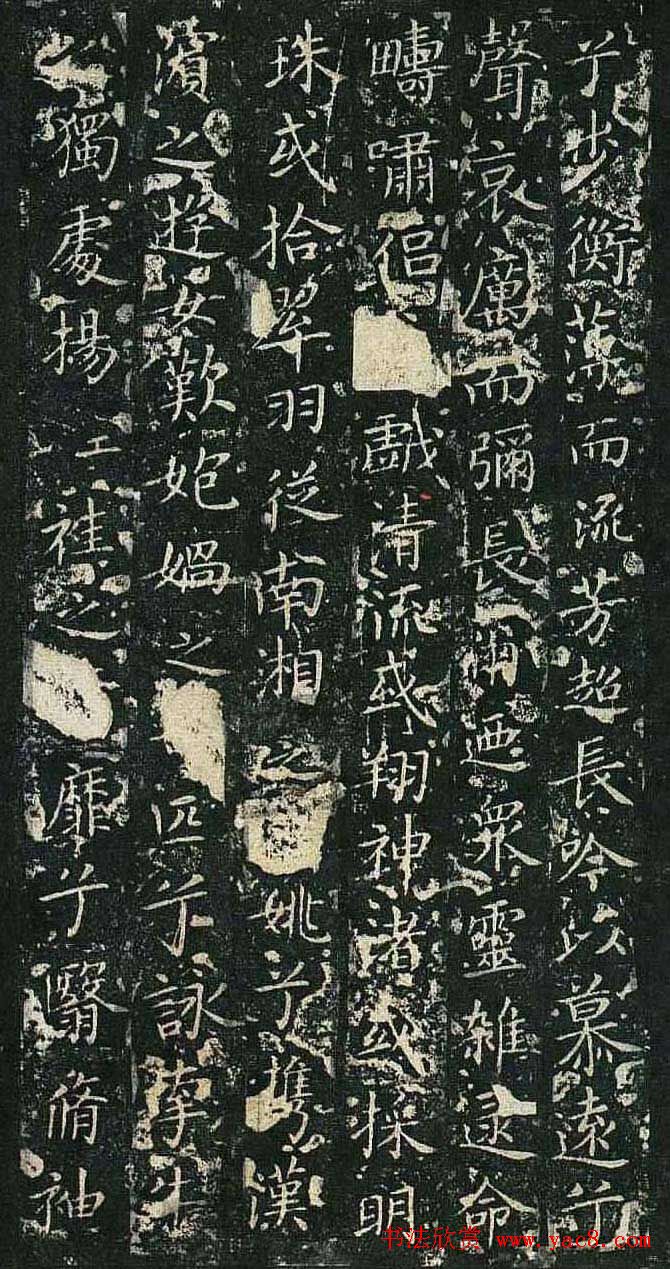 兮步衡薄而流芳超長吟以慕遠兮
聲哀厲而彌長爾迺眾靈雜遝命
疇嘯侶戲清流或翔神渚或採明
珠或拾翠羽從南湘之姚兮攜漢
濱之遊女歎媧之匹兮詠牽牛
之獨處揚袿之靡兮翳脩袖
书法欣赏 www.yac8.com